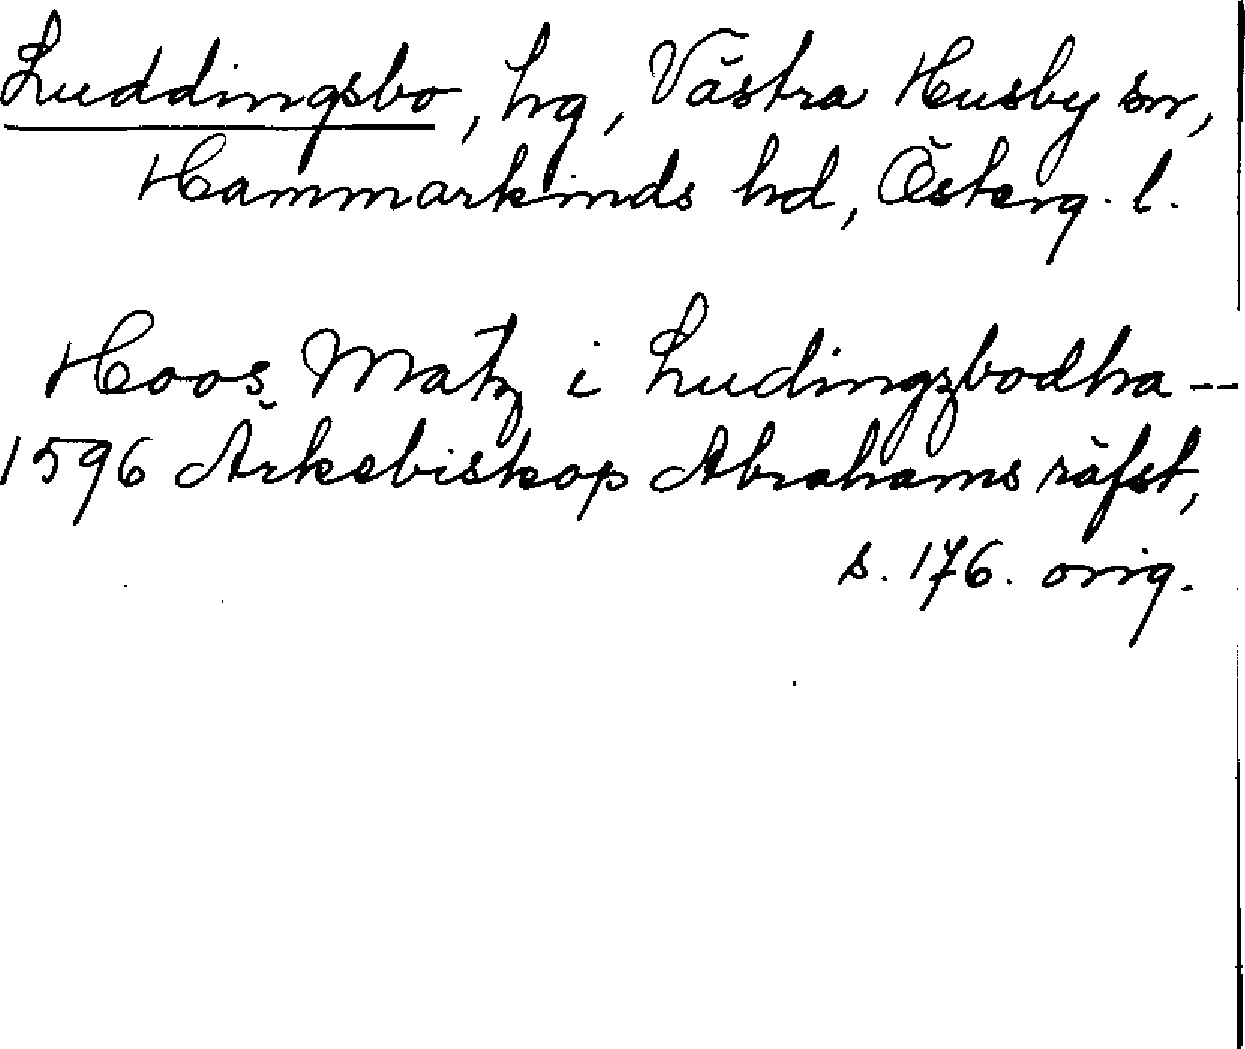 Luddingsbo, hg, Västra Husby sn,
Hammarkinds hd, Österg. l.
Hoos Matz i Ludingzbodha --
1596 Ärkebiskop Abrahams räfst,
s. 176. orig.